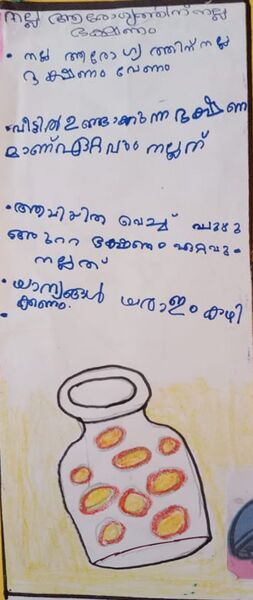 നല്ല ആരോഗ്യത്തിന് നല്ല
ഭക്ഷണം
• നല്ല ആരോഗ്യത്തിന് നല്ല
ഭക്ഷണം വേണം
• വീട്ടിൽ ഉണ്ടാക്കുന്ന ഭക്ഷണ
മാണ് ഏറ്റവും നല്ലത്
• ആവിയിൽ വെച്ച്
ഭക്ഷണം ഏറ്റവും
നല്ലത്
• ധാന്യങ്ങൾ ധാരാളം കഴി
ക്കണം.